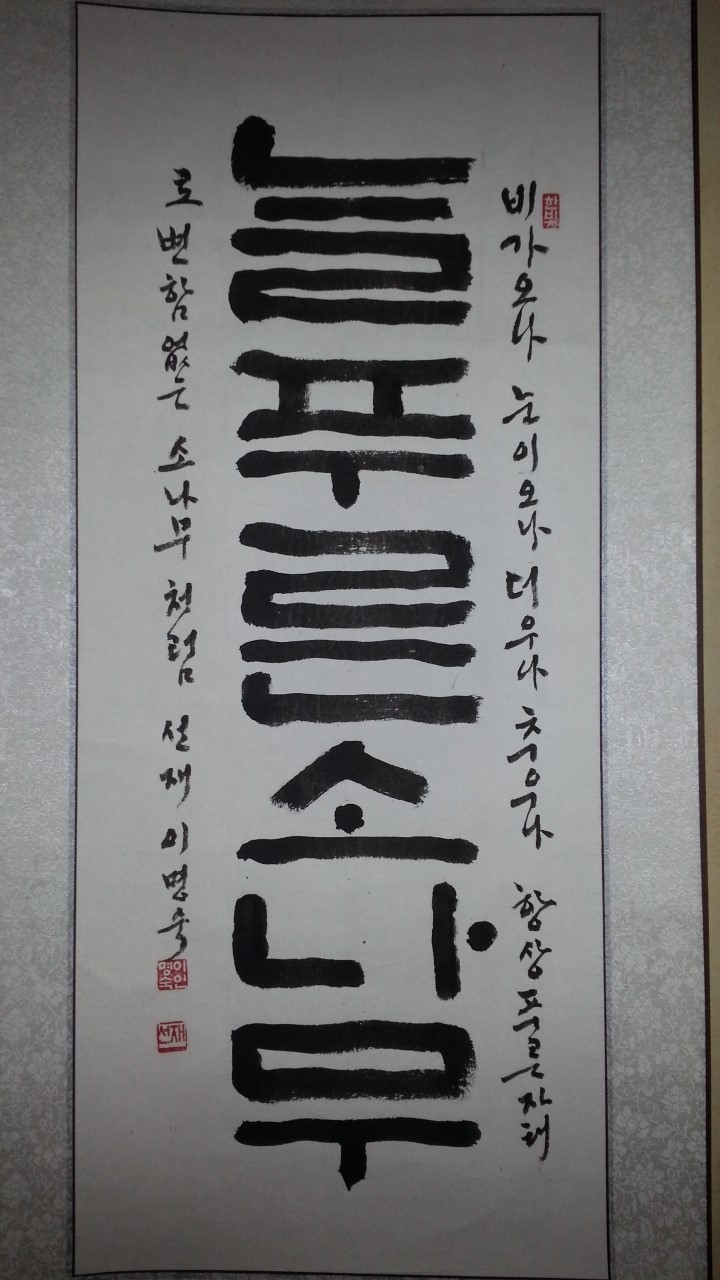 늘푸른소나무
비가오나 눈이오나 더우나 추우나 항상푸른자태
로 변함없는 소나무처럼 선재 이명숙
이명숙인
선재